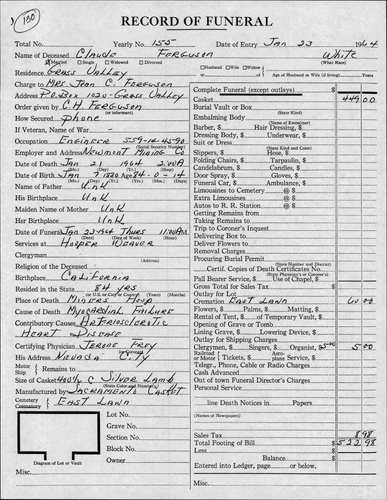 130
RECORD OF FUNERAL
Total No. Yearly No. 155 Date of Entry Jan 23 1964
Name of Deceased Claude Ferguson White
Married Single Widowed Divorced (What Race)
Residence Grass Valley Husband Wife Widow of
Charge to Mrs Jean C. Ferguson Age of Husband or Wife (if living) Years
Address P.O. Box 1020 - Grass Valley
Order given by C.H. Ferguson
(or informant)
How Secured phone
If Veteran, Name of War -
Occupation Engineer 559-14-4590
(Social Security Number)
Employer and Address Newmont Mining Co
Date of Death Jan 21 1964 2:00A
(Mo.) (Day) (Year) (Hour)
Date of Birth Jan 7 1880 Age 84-0-14
(Mo.) (Day) (Year)
Name of Father Unk
His Birthplace Unk
Maiden Name of Mother Unk
Her Birthplace Unk
Date of Funeral Jan 23-1964 Thurs 11:00AM
(Date) (Day of Week) (Hour)
Services at Hooper Weaver
Clergyman
(Address)
Religion of the Deceased -
Birthplace California
Resided in the State 84 yrs
(or U.S. or City or County) (Years) (Months)
Place of Death Miners Hosp
Cause of Death Myocardial Failure
Contributory Causes Arteriosclerotic
Heart Disease
Certifying Physician Jerome Frey
His Address Nevada City
Motor
Ship Remains to
Size of Casket Silver Lamb
(State Color and Number)
Manufactured by Sacramento Casket
Cemetery
Crematory East Lawn
Lot No.
Grave No.
Section No.
Block No.
Owner
Diagram of Lot or Vault
Misc.
Complete Funeral (except outlays) $
Casket 449.00
Burial Vault or Box
(State Kind)
Embalming Body
(Name of Embalmer)
Barber, $ Hair Dressing, $
Dressing Body, $ Underwear, $
Suit or Dress
(State Kind and Color)
Slippers, $ Hose, $
Folding Chairs, $ Tarpaulin, $
Candelabrum, $ Candles, $
Door Spray, $ Gloves, $
Funeral Car, $ Ambulance, $
Limousines to Cemetery @ $
Extra Limousines @ $
Autos to R. R. Station @ $
Getting Remains from
Taking Remains to
Trip to Coroner's Inquest
Delivering Box to
Deliver Flowers to
Removal Charges
Procuring Burial Permit
(State Number and District)
Certif. Copies of Death Certificates No.
(State Physician's or Coroner's)
Pall Bearer Service, $ Use of Chapel, $
Gross Total for Sales Tax $
Outlay for Lot
Cremation East Lawn 60.00
Flowers, $ Palms, $ Matting, $
Rental of Tent, $ of Temporary Vault, $
Opening of Grave or Tomb
Lining Grave, $ Lowering Device, $
Outlay for Shipping Charges
Clergymen, $ Singers, $ Organist, $5.00 5.00
Railroad or Motor Tickets, $ Aeroplane Service, $
Teleg., Phone, Cable or Radio Charges
Cash Advanced
Out of town Funeral Director's Charges
Personal Service
line Death Notices in Papers
(Names of Newspapers)
Sales Tax 8.98
Total Footing of Bill $522.98
Less
Balance $
Entered into Ledger, page or below.
Misc.